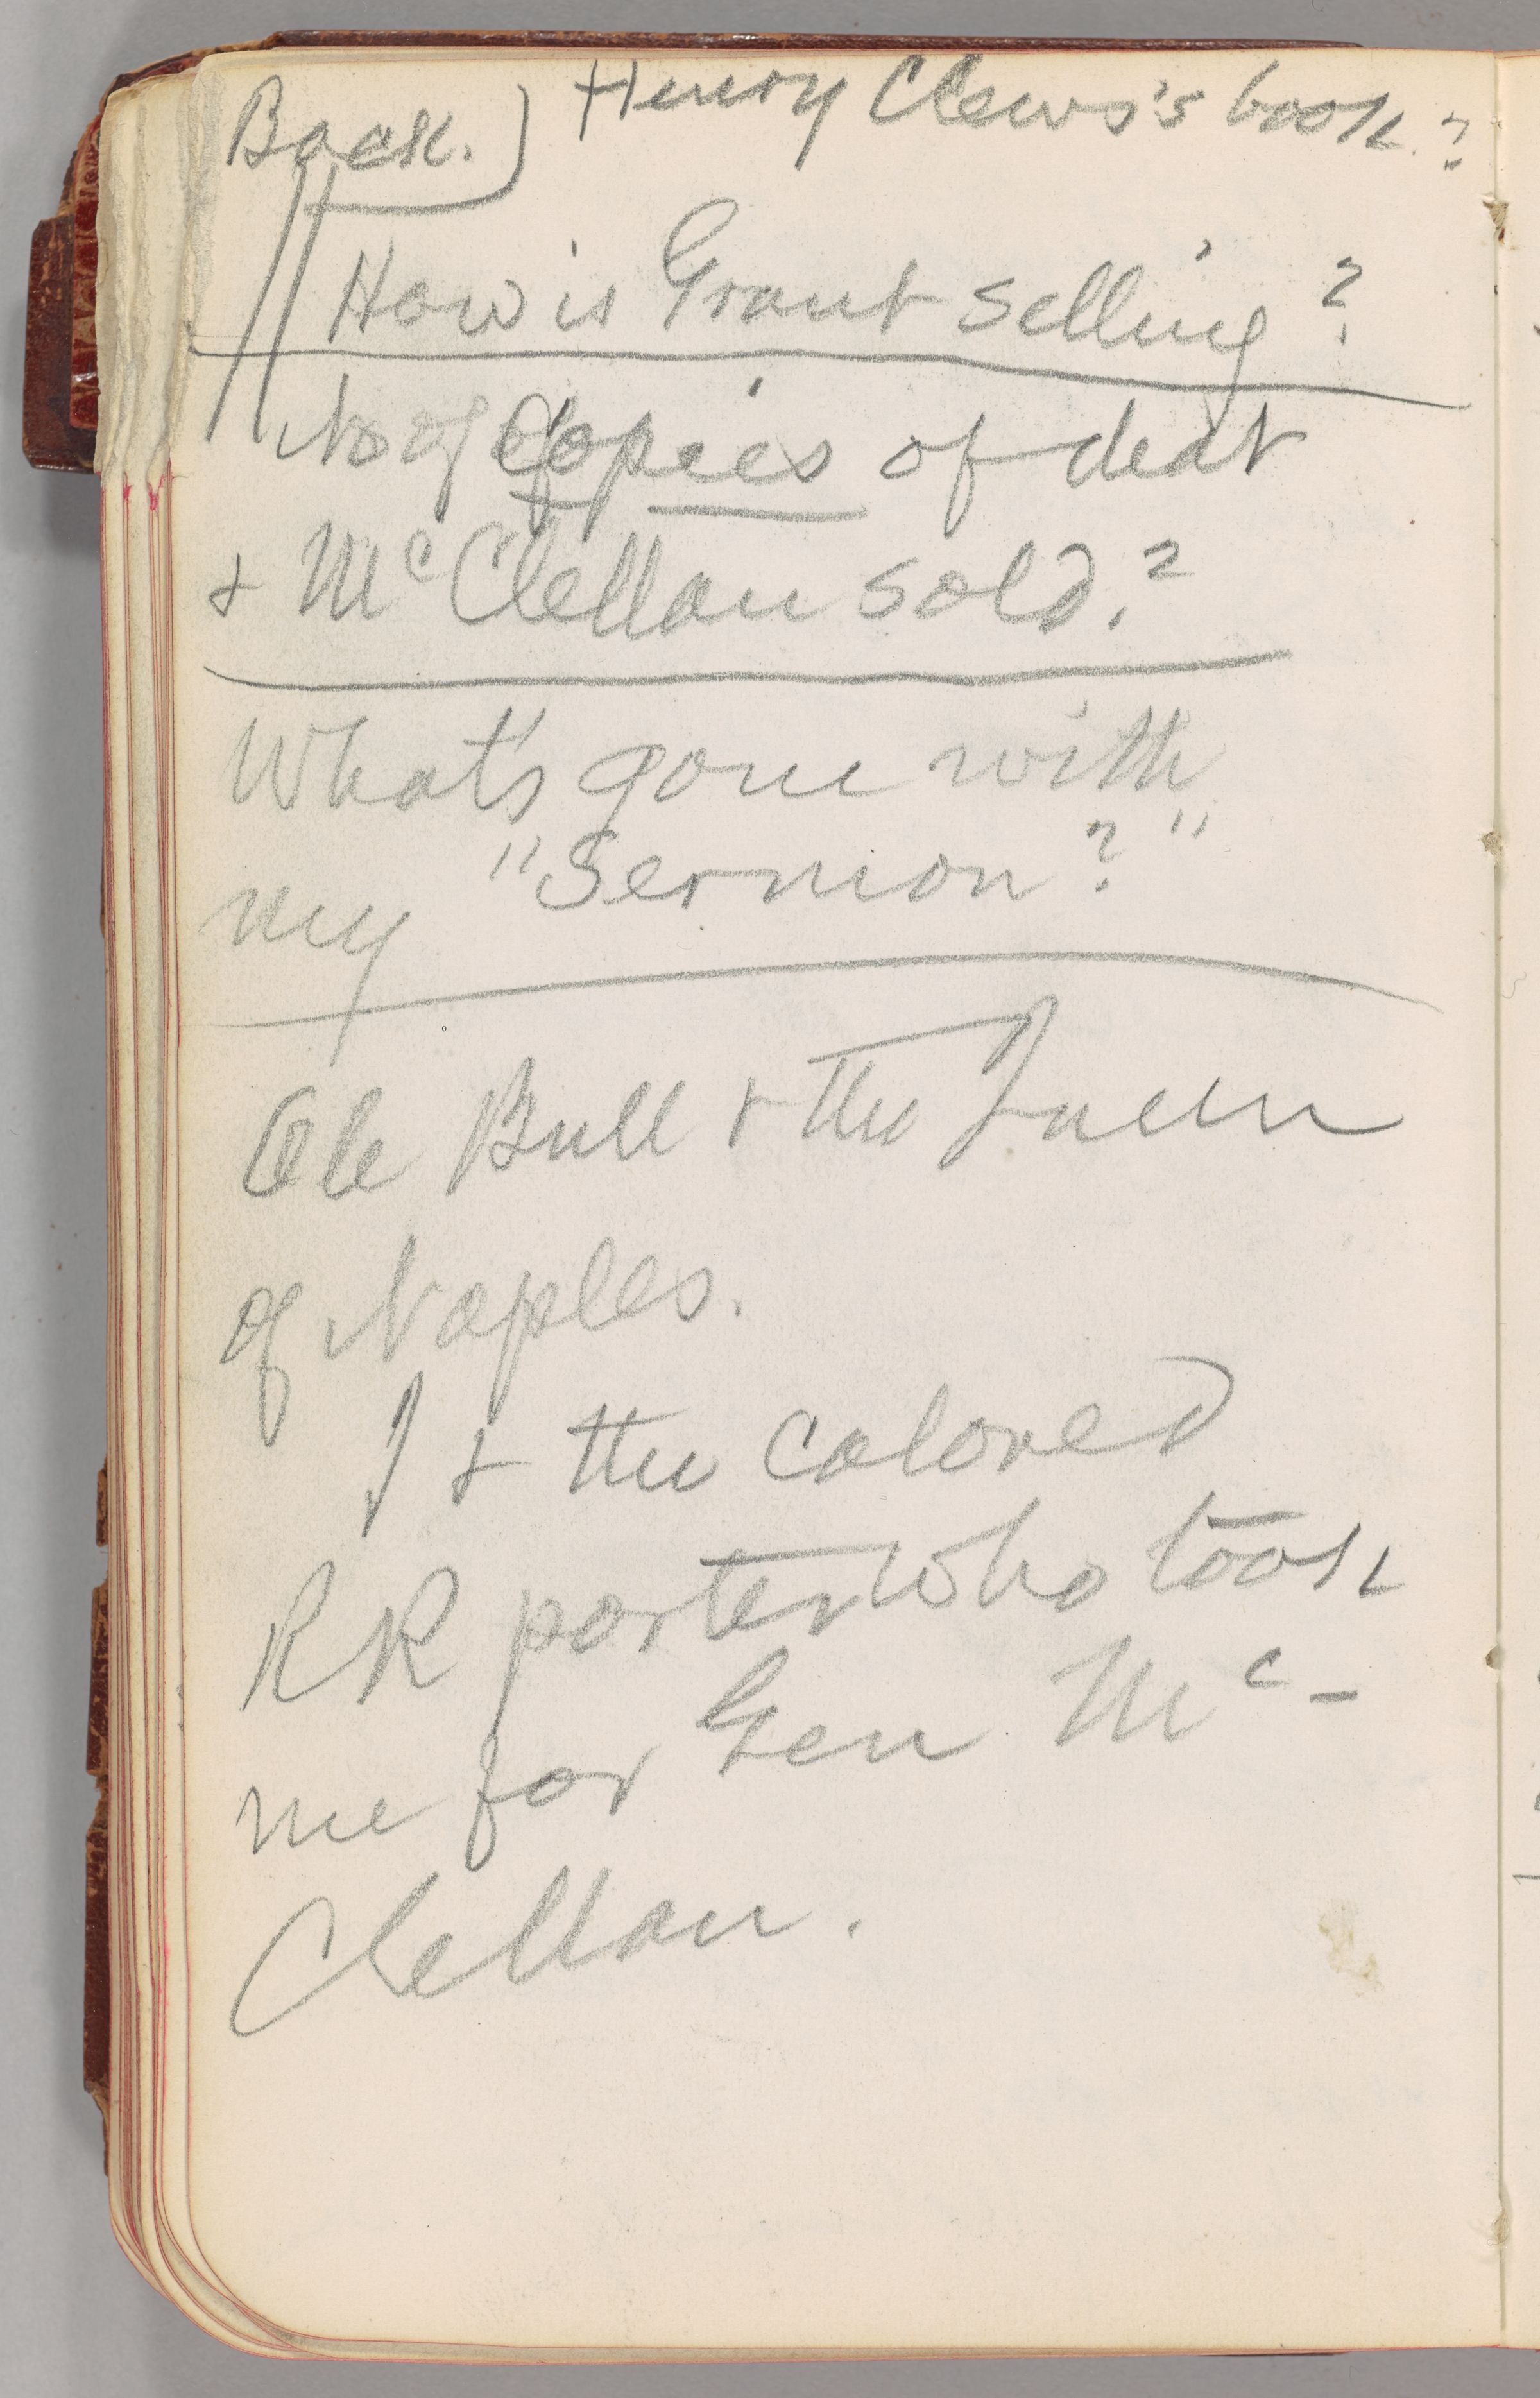 Back.) Henry Clews's book?
How is Grant selling?
No of Copies of deat
& McClellan sold?
What's gone with
my "Sermon?"
Ole Bull & the Queen
of Naples.
I & the colored
RR porter who took
me for Gen Mc-
Clellan.